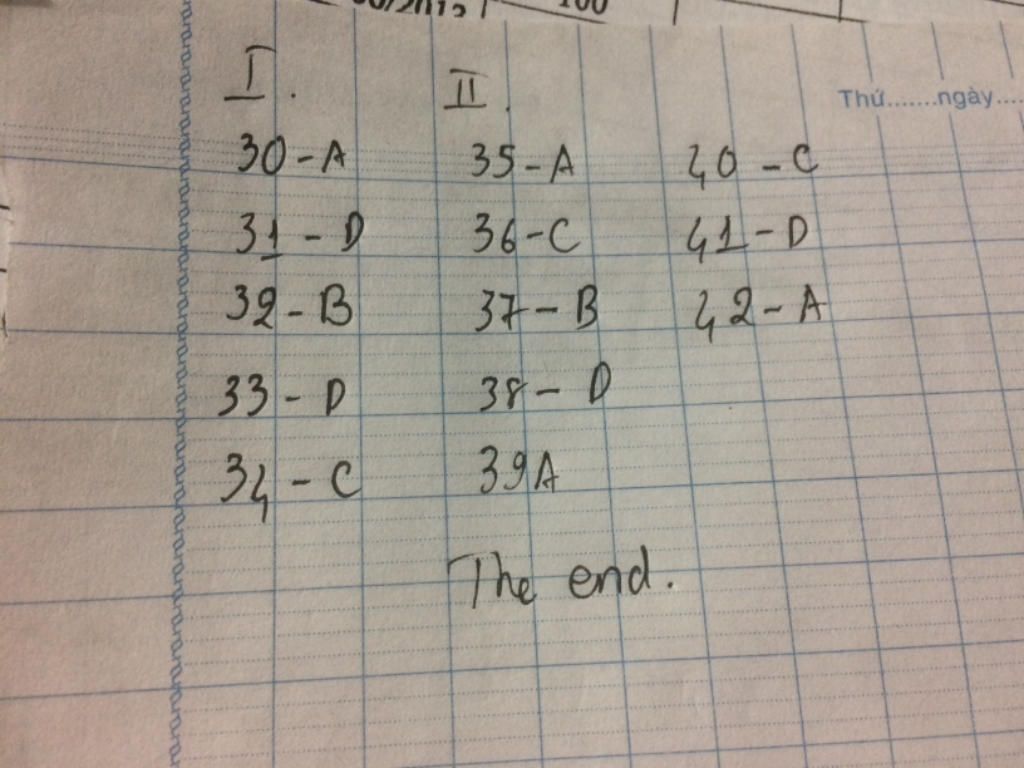 100
Thứ.......ngày....
I.
30-A
31-D
32-B
33-D
34-C
II.
35-A
36-C
37-B
38-D
39A
40-C
41-D
42-A
The end.